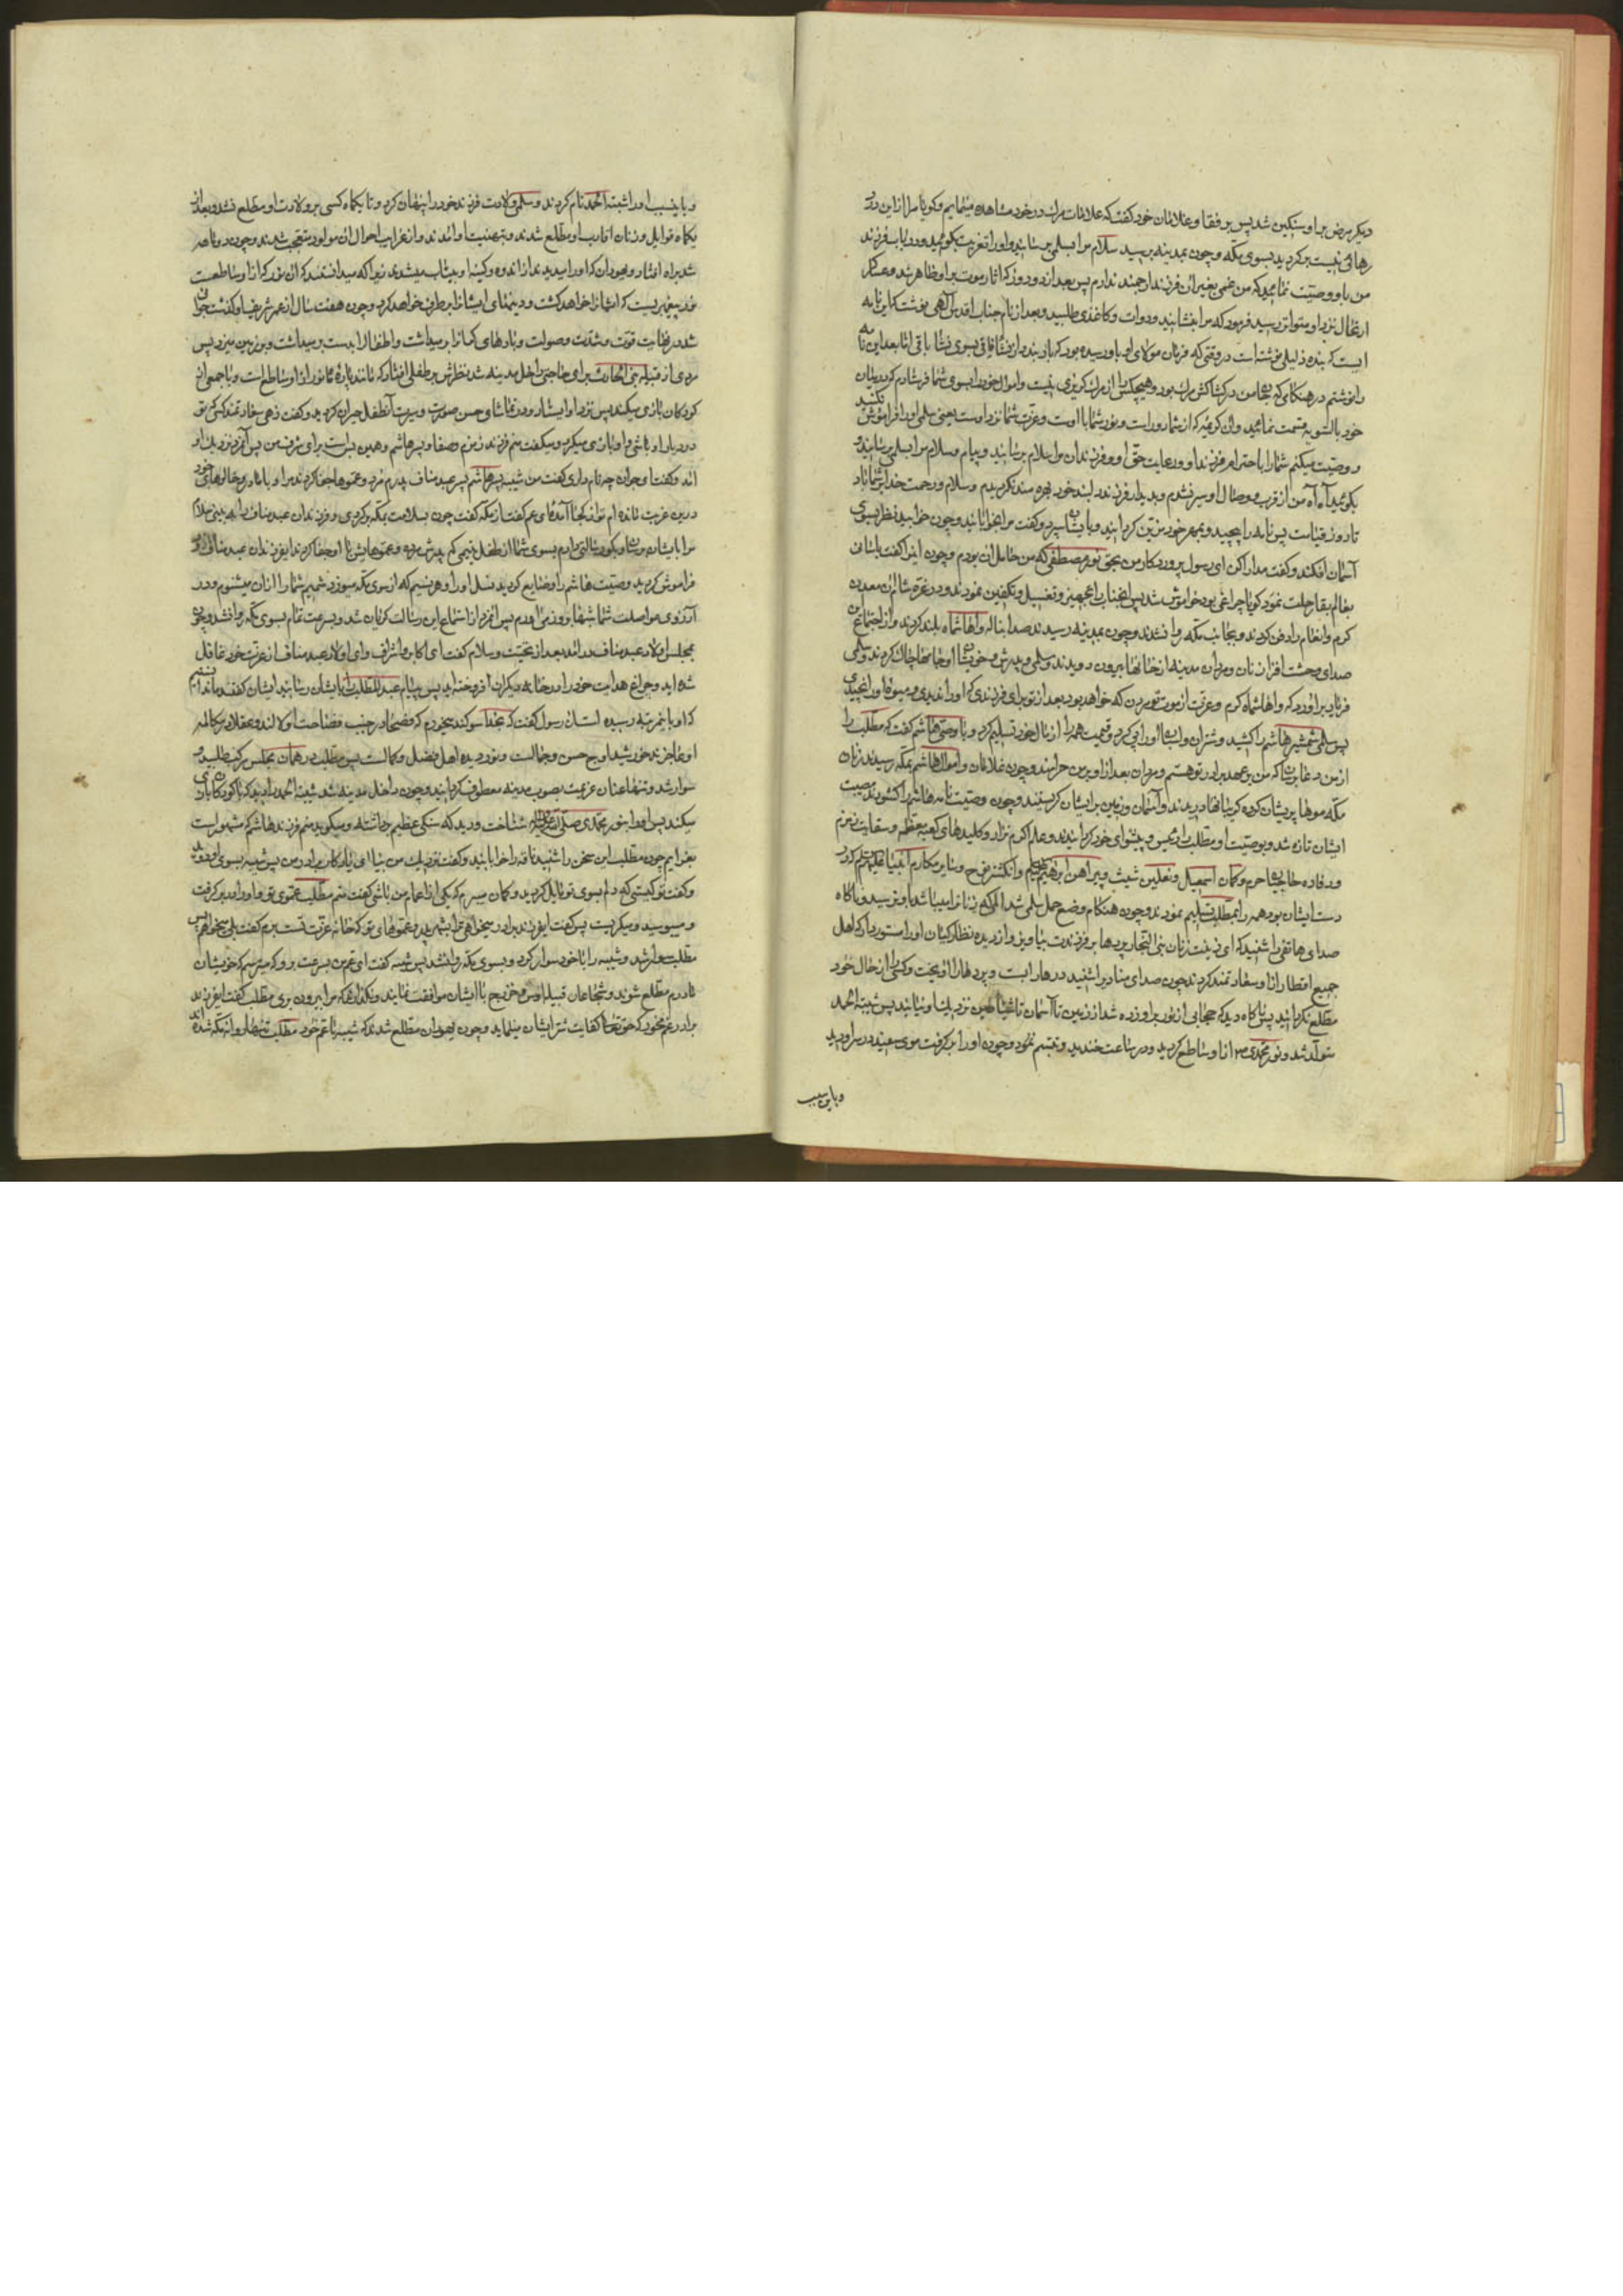 دیگر مرض بر او سنگین شد پس بر فقا و غلامان خود گفت که علامات مرك در خود مشاهده مینمایم و کویا مرا از این درد
رهائی نیست بر کردید بسوی مکّه و چون بمدینه برسید سلام مرا بسلمی برسانید و او را تعزیت بکوئید و در باب فرزند
من باو وصیّت نمائید که من غمی بغیر ان فرزند ارجمند ندارم پس بعد از دو روز که اثار موت بر او ظاهر شد و عساکر
ارتحال نزد او متواتر رسید فرمود که مرا بنشانید و دوات و کاغذی طلبید و بعد از نام جناب اقدس الهی نوشت که این نامه
ایست که بنده ذلیلی نوشته است در وقتی که فرمان مولای او باو رسیده بود که بار بندد از نشاء فانی بسوی نشاء باقی امّا بعد این نامه
را نوشتم در هنکامی که جان من در کشاکش مرك بود و هیچکس را از مرك کریزی نیست و اموال خود را بسوی شما فرستادم که در میان
خود بالسّویه قسمت نمائید و ان کریمه که از شما دور است و نور شما با اوست و عزّت شما نزد اوست یعنی سلمی او را فراموش نکنید
و وصیّت میکنم شما را باحترام فرزند او و رعایت حقّ او و فرزندان مرا سلام برسانید و پیام و سلام مرا بسلمی برسانید و
بکوئید آه آه من از قرب و وصال او سیر نشدم و بدیدار فرزند دلبند خود بهره‌مند نکردیدم و سلام و رحمت خدا بر شما باد
تا روز قیامت پس نامه را پیچید و بمهر خود مزیّن کردانید و بایشان سپرد و گفت مرا بخوابانید و چون خوابید نظر بسوی
آسمان افکند و گفت مدارا کن ای رسول پروردکار من بحقّ نور مصطفی که من حامل ان بودم و چون اینرا گفت باسانی
بعالم بقا رحلت نمود کویا چراغی بود خاموش شد پس انجناب را تجهیز و تغسیل و تکفین نمودند و در غزّه شام ان معدن
کرم و انعام را دفن کردند و بجانب مکّه روانشدند و چون بمدینه رسیدند صدا بناله واهاشماه بلند کردند و از اجتماع این
صدای وحشت افزا زنان و مردان مدینه از خانها بیرون دویدند و سلمی و پدرش و خویشان او جامها چاك کردند و سلمی
فریاد بر اورد که واهاشماه کرم و عزّت از موت تو مردن که خواهد بود بعد از تو برای فرزندی که او را ندیدی و میوه او را نچیدی
پس سلمی شمشیر هاشم را کشید و شتران و اسبان او را پی کرد و قیمت همه را از مال خود تسلیم کرد و با وصیّ هاشم گفت که مطّلب را
از من دعا برسان که من بر عهد برادر تو هستم و مردان بعد از او بر من حرامند و چون غلامان و اموال هاشم بمکّه رسیدند زنان
مکّه موها پریشان کرده کریبانها دریدند و آسمان و زمین بر ایشان کریستند و چون وصیّت نامه هاشم را کشودند مصیبت
ایشان تازه شد و بوصیّت او مطّلب را رئیس و پیشوای خود کردانیدند و علم اکرم نزار و کلیدهای کعبه معظّمه و سقایت زمزم
و رفاده حاجیان حرم و کمان اسمعیل و نعلین شیث و پیراهن ابرهیم و انکشتر نوح و سایر مکارم انبیا علیهم السّلم که در
دست ایشان بود همه را بمطّلب تسلیم نمودند و چون هنکام وضع حمل سلمی شد المی که زنانرا میباشد باو نرسید و ناکاه
صدای هاتفی را شنید که ای زینت زنان بنی النّجار پردها بر فرزندت بیاویز و از دیده نظارکیان او را مستور دار که اهل
جمیع اقطار را با او سعادتمند کردند چون صدای منادیرا شنید درها را بست و پردها را اویخت و کسی را از حال خود
مطّلع نکردانید پس ناکاه دید که حجابی از نور بر او زده شد از زمین تا آسمان تا شیاطین نزدیك ایشان نیایند پس شیبة الحمد
متولّد شد و نور محمّدی از او ساطع کردید و در ساعت خندید و تبسّم نمود و چون او را بر کرفت موی سفید در سر او دید
و باین سبب
و باین سبب او را شیبة الحمد نام کردند و سلمی ولادت فرزند خود را پنهان کرد و تا یکماه کسی بر ولادت او مطّلع نشد و بعد از
یکماه قوابل و زنان اقارب او مطّلع شدند و بتهنیت او امدند و از غرایب احوال ان مولود متعجّب شدند و چون دو ماهه
شد براه افتاد و یهودان که او را میدیدند از اندوه و کینه او بیتاب میشدند زیرا که میدانستند که ان نور که از او ساطعست
نور پیغمبریست که ایشانرا خواهد کشت و دینهای ایشانرا بر طرف خواهد کرد و چون هفت سال از عمر شریف او گذشت جوانی
شد در نهایت قوّت و شدّت و صولت و بارهای کرانرا برمیداشت و اطفال را بدست برمیداشت و بر زمین میزد پس
مردی از قبیله بنی الحارث برای حاجتی داخل مدینه شد نظرش بر طفلی افتاد که مانند پاره ماه نور از او ساطع است و با جمعی از
کودکان بازی میکند پس نزد او ایستاد و در تماشای حسن صورت و سیرت آنطفل حیران کردید و گفت زهی سعادتمند کسی که تو
در دیار او باشی و او بازی میکرد و میگفت منم فرزند زمزم و صفا و پسر هاشم و همین بس است برای شرف من پس آنمرد نزدیك او
امد و گفت ای جوان چه نام داری گفت من شیبه پسر هاشم پسر عبد مناف پدرم مرد و عموها جفا کردند مرا و با مادر و خالوهای خود
درین غربت مانده ام تو از کجا آمدهٔ ای عم گفت از مکّه گفت چون بسلامت بمکّه برکردی و فرزندان عبد مناف را به بینی سلام
مرا بایشان برسان و بکو رسالتی دارم بسوی شما از طفل یتیمی که پدرش مرده و عموهایش با او جفا کردند ای فرزندان عبد مناف زود
فراموش کردید وصیّت هاشم را و ضایع کردید نسل او را و هر نسیم که از سوی مکّه میوزد شمیم شما را از ان میشنوم و در
آرزوی مواصلت شما شبها بروز می‌آورم پس انمرد از استماع این رسالت کریان شد و بسرعت تمام بسوی مکّه روانشد و چون
بمجلس اولاد عبد مناف در امد بعد از تحیّت و سلام گفت ای اکابر و اشراف و ای اولاد عبد مناف از عزّت خود غافل
شده اید و چراغ هدایت خود را در خانه دیکران افروخته اید پس پیام عبد المطّلب را بایشان رسانید ایشان گفتند ما ندانستیم
که او باین مرتبه رسیده است ان رسول گفت که بخدا سوکند میخورم که فصحا در جنب فصاحت او لالند و عقلا در مکالمه
او عاجزند خورشید اوج حسن و جمالست و نور دیده اهل فضل و کمالست پس مطّلب در همان مجلس مرکب طلبید و
سوار شد و تنها عنان عزیمت بصوب مدینه معطوف کردانید و چون داخل مدینه شد شیبة الحمد را دید که با کودکان بازی
میکند پس او را بنور محمّدی صلّی الله علیه و آله شناخت و دید که سنکی عظیم برداشته و میکوید منم فرزند هاشم که مشهور است
بعزایم چون مطّلب این سخن را شنید ناقه را خوابانید و گفت نزدیك من بیا ای یادکار برادر من پس شیبه بسوی او دوید
و گفت تو کیستی که دلم بسوی تو مایل کردید و کمان میبرم که یکی از اعمام من باشی گفت منم مطّلب عموی تو و او را در بر کرفت
و میبوسید و میکریست پس گفت ای فرزند برادر میخواهی ترا ببرم بشهر پدر و عموهای تو که خانه عزّت تست گفت بلی میخواهم پس
مطّلب سوار شد و شیبه را با خود سوار کرد و بسوی مکّه روانشد پس شیبه گفت ای عم من بسرعت برو که میترسم که خویشان
مادرم مطّلع شوند و شجاعان قبیله اوس و خزرج با ایشان موافقت نمایند و نکذارند که مرا بیرون بری مطّلب گفت ای فرزند
برادر غم مخور که حقّ تعالی کفایت شرّ ایشان مینماید و چون یهودان مطّلع شدند که شیبه با عمّ خود مطّلب تنها روانه مکّه شده اند